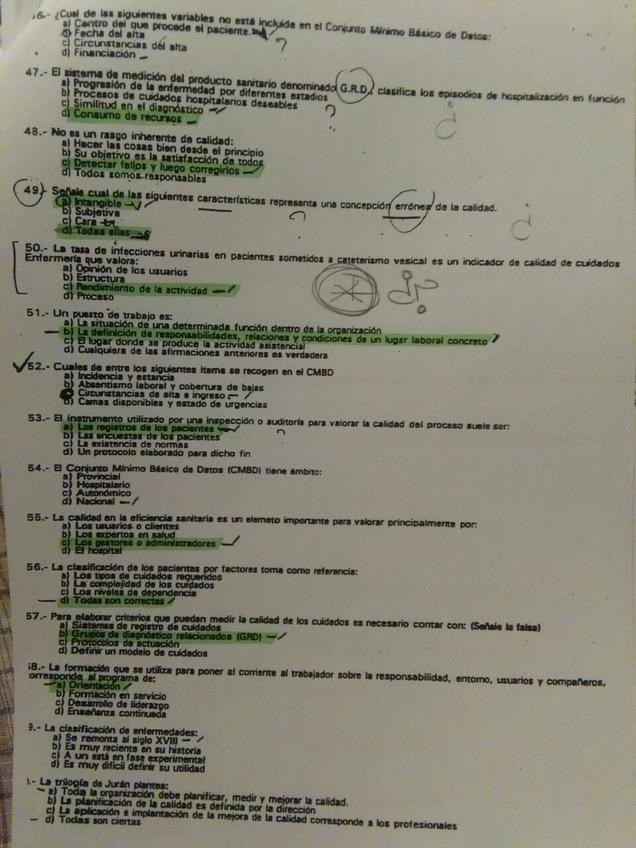 6.- ¿Cual de las siguientes variables no está incluida en el Conjunto Mínimo Básico de Datos:
a) Centro del que procede el paciente.
b) Fecha del alta
c) Circunstancias del alta
d) Financiación
47.- El sistema de medición del producto sanitario denominado G.R.D., clasifica los episodios de hospitalización en función
a) Progresión de la enfermedad por diferentes estadios
b) Procesos de cuidados hospitalarios deseables
c) Similitud en el diagnóstico
d) Consumo de recursos
48.- No es un rasgo inherente de calidad:
a) Hacer las cosas bien desde el principio
b) Su objetivo es la satisfacción de todos
c) Detectar fallos y luego corregirlos
d) Todos somos responsables
49.- Señale cual de las siguientes características representa una concepción errónea de la calidad.
a) Intangible
b) Subjetiva
c) Cara
d) Todas ellas
50.- La tasa de infecciones urinarias en pacientes sometidos a cateterismo vesical es un indicador de calidad de cuidados
Enfermería que valora:
a) Opinión de los usuarios
b) Estructura
c) Rendimiento de la actividad
d) Proceso
51.- Un puesto de trabajo es:
a) La situación de una determinada función dentro de la organización
b) La definición de responsabilidades, relaciones y condiciones de un lugar laboral concreto
c) El lugar donde se produce la actividad asistencial
d) Cualquiera de las afirmaciones anteriores es verdadera
52.- Cuales de entre los siguientes items se recogen en el CMBD
a) Incidencia y estancia
b) Absentismo laboral y cobertura de bajas
Circunstancias de alta e ingreso
d) Camas disponibles y estado de urgencias
53.- El instrumento utilizado por una inspección o auditoría para valorar la calidad del proceso suele ser:
a) Los registros de los pacientes
b) Las encuestas de los pacientes
c) La existencia de normas
d) Un protocolo elaborado para dicho fin
54.- El Conjunto Mínimo Básico de Datos (CMBD) tiene ámbito:
a) Provincial
b) Hospitalario
c) Autonómico
d) Nacional
55.- La calidad en la eficiencia sanitaria es un elemeto importante para valorar principalmente por:
a) Los usuarios o clientes
b) Los expertos en salud
c) Los gestores o administradores
d) El hospital
56.- La clasificación de los pacientes por factores toma como referencia:
a) Los tipos de cuidados requeridos
b) La complejidad de los cuidados
c) Los niveles de dependencia
d) Todas son correctas
57.- Para elaborar criterios que puedan medir la calidad de los cuidados es necesario contar con: (Señale la falsa)
a) Sistemas de registro de cuidados
b) Grupos de diagnóstico relacionados (GRD)
c) Protocolos de actuación
d) Definir un modelo de cuidados
58.- La formación que se utiliza para poner al corriente al trabajador sobre la responsabilidad, entorno, usuarios y compañeros,
orresponde al programa de:
a) Orientación
b) Formación en servicio
c) Desarrollo de liderazgo
d) Enseñanza continuada
9.- La clasificación de enfermedades:
a) Se remonta al siglo XVIII
b) Es muy reciente en su historia
c) A un está en fase experimental
d) Es muy difícil definir su utilidad
.- La trilogía de Jurán plantea:
a) Toda la organización debe planificar, medir y mejorar la calidad.
b) La planificación de la calidad es definida por la dirección
c) La aplicación e implantación de la mejora de la calidad corresponde a los profesionales
d) Todas son ciertas